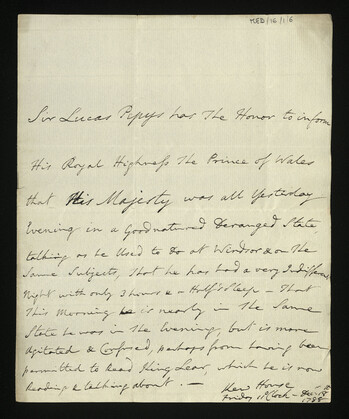 MED/16/1/6
Sir Lucas Pepys has The Honor to inform
His Royal Highness The Prince of Wales
that His Majesty was all Yesterday
Evening in a Goodnatured Deranged State,
talking as he Used to do at Windsor & on the
Same Subjects, That he has had a very Indifferent
Night with only 3 hours & a Half's Sleep – That
This Morning he is nearly in the Same
State he was in the Evening, but is more
Agitated & Confused, perhaps from having been
permitted to Read King Lear, which he is now
Reading & talking about. —
Kew House
Friday 11 Clock – Dec – 19
1788